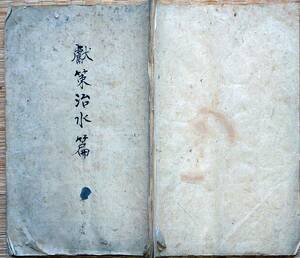 獻策治水篇